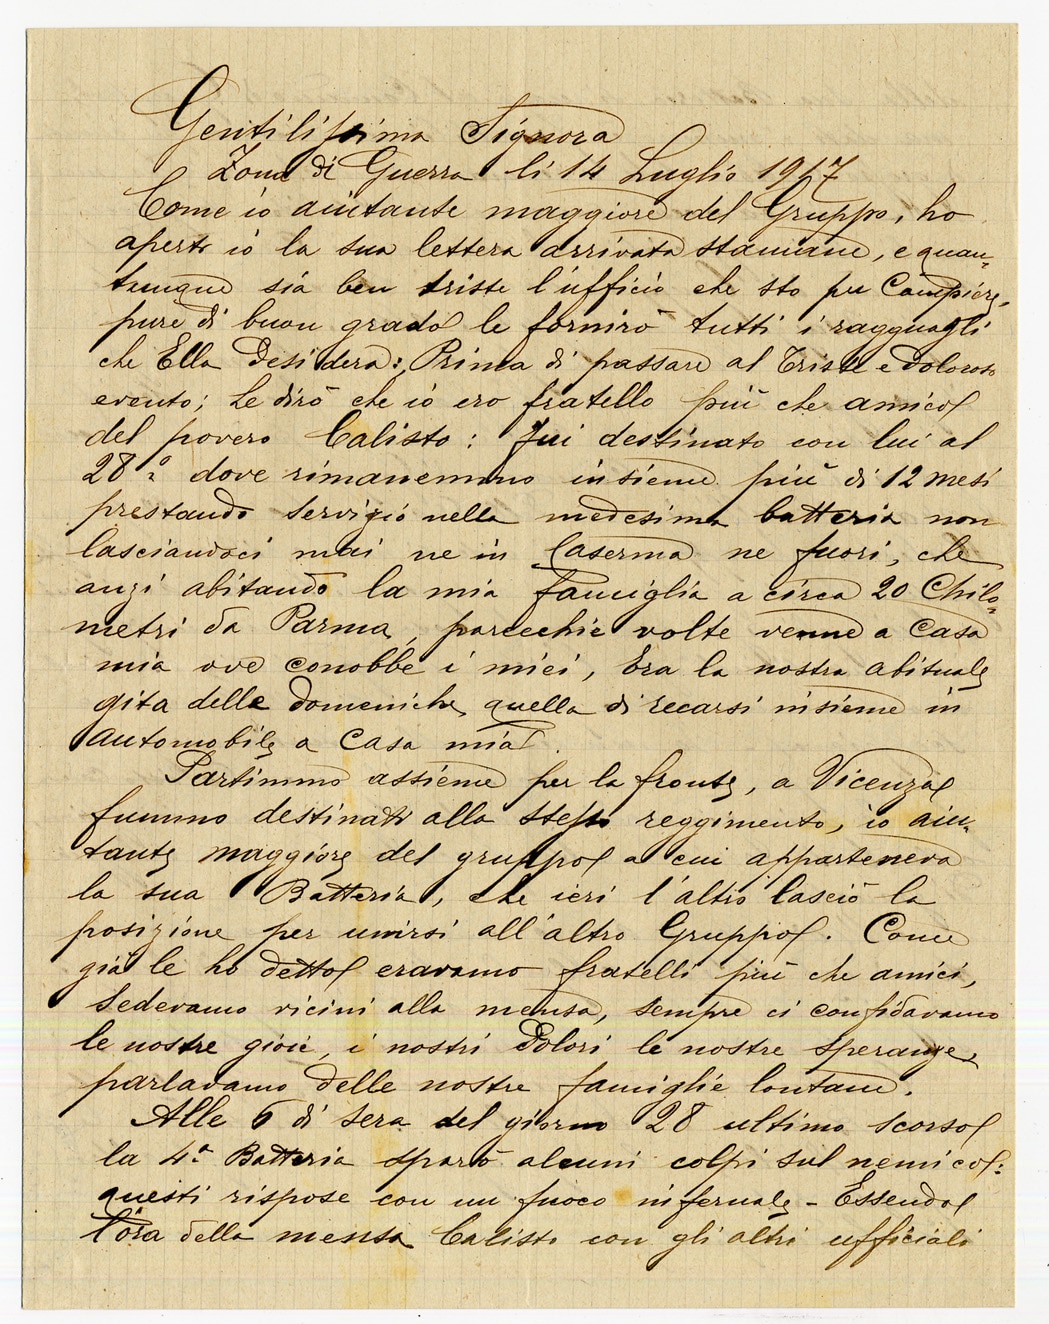 Gentilissima Signora
Zona di Guerra li 14 Luglio 1917
Come io aiutante maggiore del Gruppo, ho
aperto io la sua lettera arrivata stamane, e quan-
tunque sia ben triste l'ufficio che sto per compiere,
pure di buon grado le fornirò tutti i ragguagli
che Ella desidera: Prima di passare al triste e doloroso
evento; Le dirò che io ero fratello più che amico
del povero Calisto: fui destinato con lui al
28º dove rimanemmo insieme più di 12 mesi
prestando servizio nella medesima batteria non
lasciandoci mai ne in Caserma ne fuori, che
anzi abitando la mia famiglia a circa 20 Chilo-
metri da Parma, parecchie volte venne a casa
mia ove conobbe i miei, Era la nostra abituale
gita delle domeniche, quella di recarsi insieme in
automobile a casa mia.
Partimmo assieme per la fronte, a Vicenza
fummo destinati allo stesso reggimento, io aiu-
tante maggiore del gruppo a cui apparteneva
la sua Batteria, che ieri l'altro lasciò la
posizione per unirsi all'altro Gruppo. Come
già le ho detto eravamo fratelli più che amici,
Sedevamo vicini alla mensa, sempre ci confidavamo
le nostre gioie, i nostri dolori le nostre speranze,
parlavamo delle nostre famiglie lontane.
Alle 6 di sera del giorno 28 ultimo scorso
la 4ª Batteria sparò alcuni colpi sul nemico:
questi rispose con un fuoco infernale - Essendo
l'ora della mensa Calisto con gli altri ufficiali